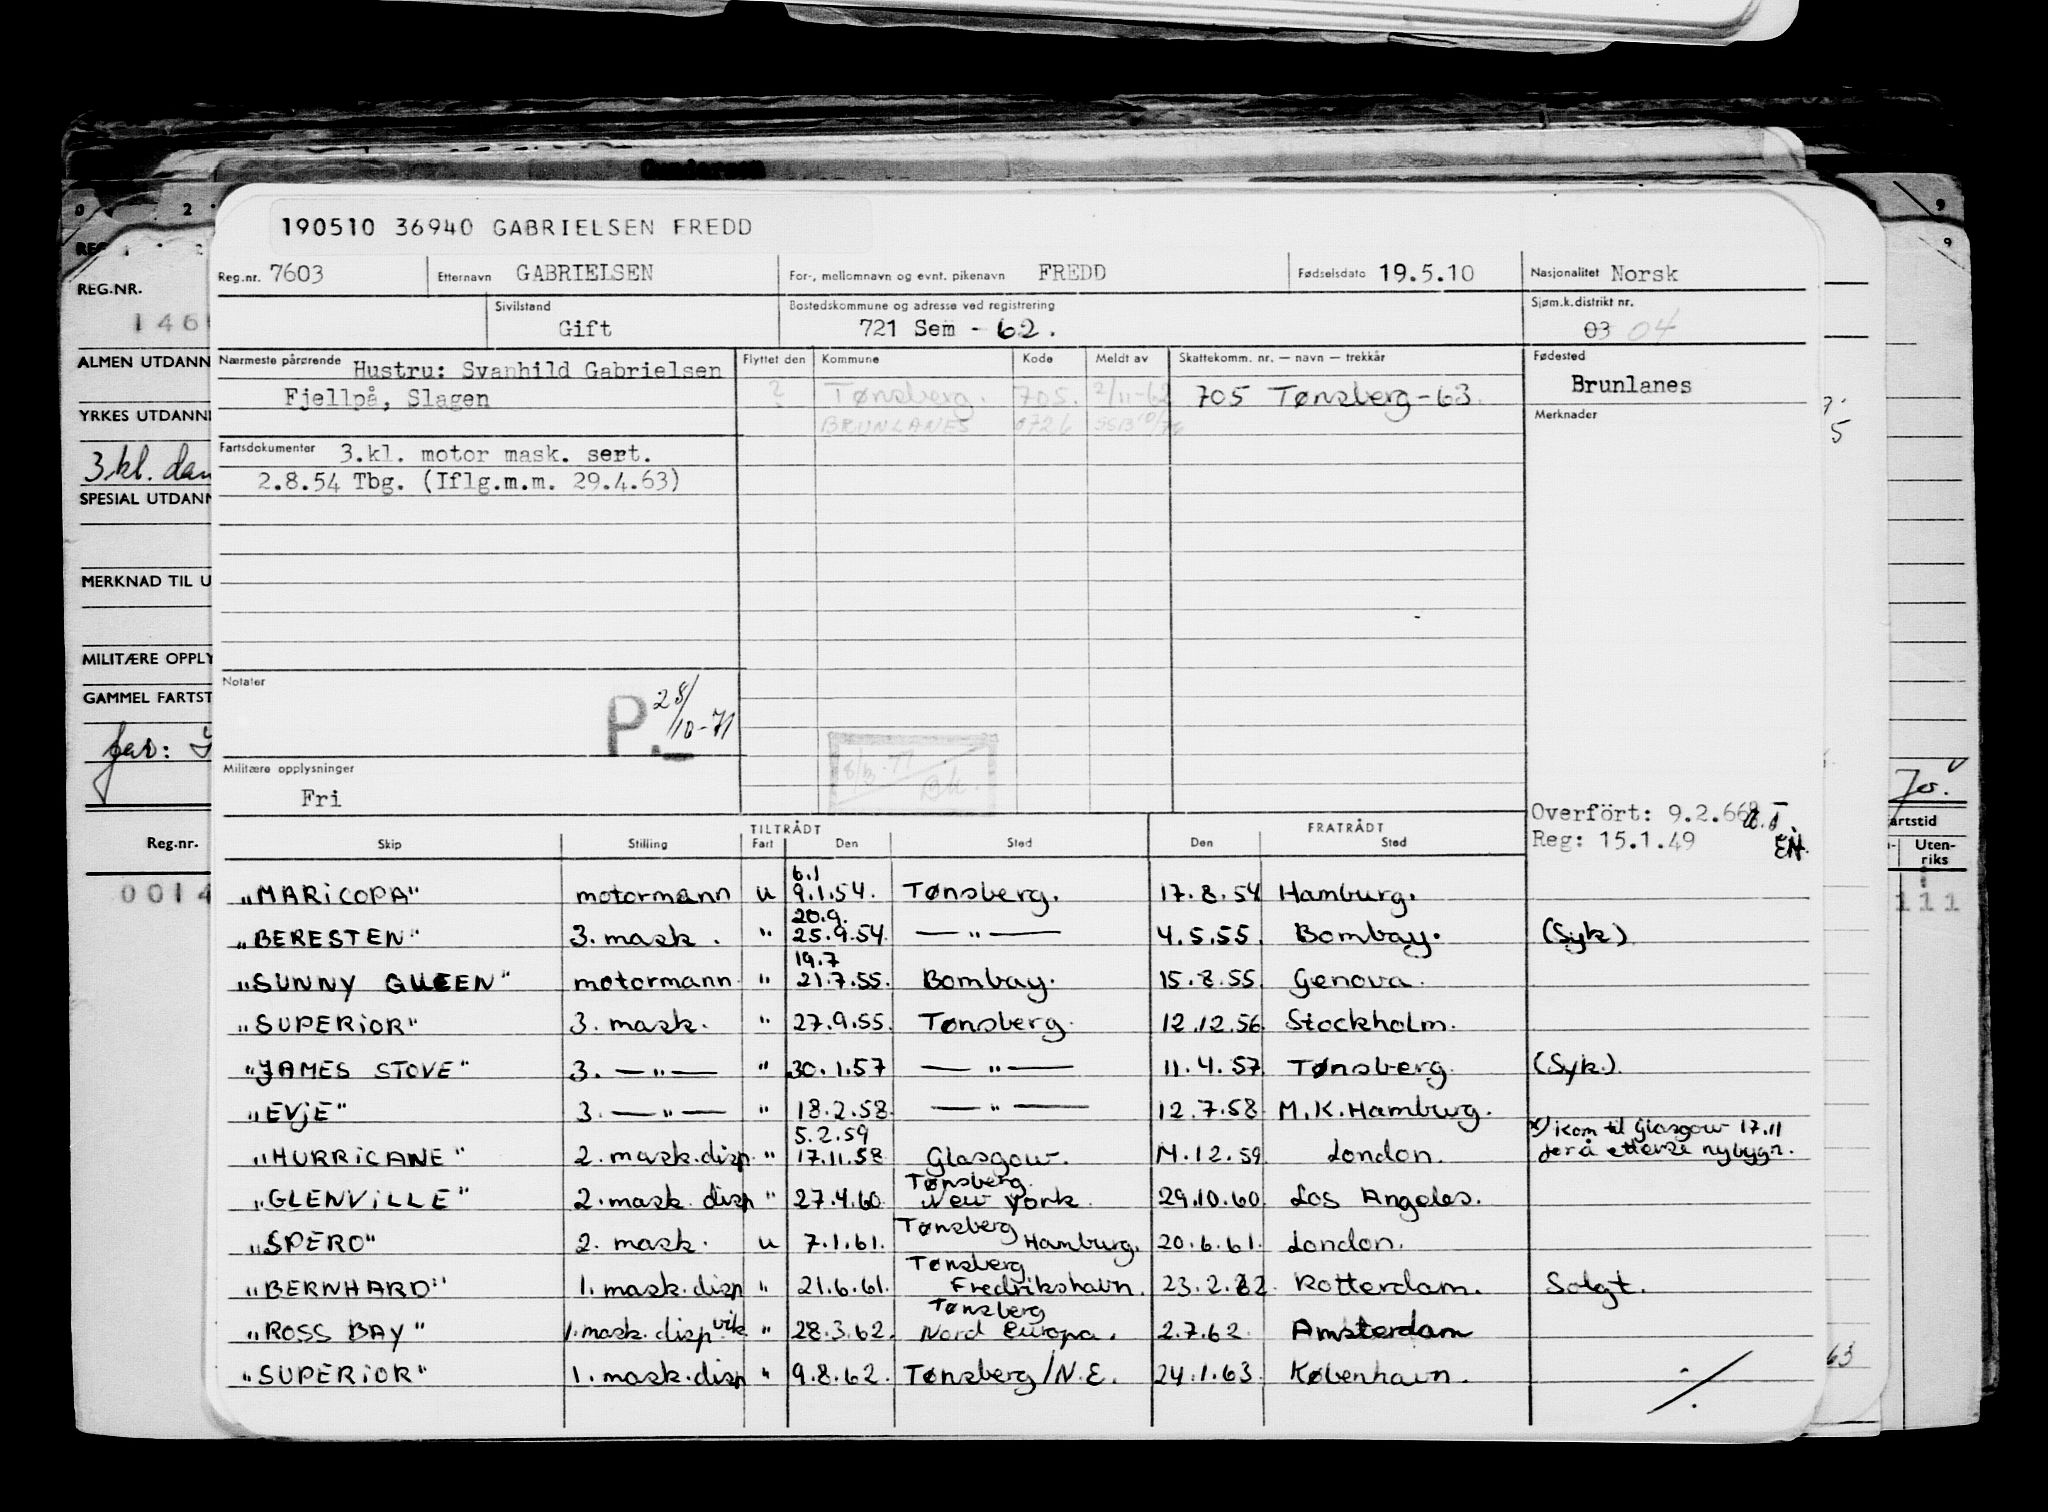 190510 36940 GABRIELSEN FREDD
Reg.nr. 7603 Etternavn GABRIELSEN For-, mellomnavn og evnt. pikenavn FREDD Fødselsdato 19.5.10 Nasjonalitet Norsk
Sivilstand Gift Bostedskommune og adresse ved registrering 721 Sem - 62. Sjøm.k.distrikt nr. 03 04
Nærmeste pårørende Hustru: Svanhild Gabrielsen Flyttet den Kommune Kode Meldt av Skattekomm. nr. — navn — trekkår Fødested
Fjellpå, Slagen ? Tønsberg. 705. 2/11-62 705 Tønsberg-63. Brunlanes
BRUNLANES 0726 Merknader
Fartsdokumenter 3.kl. motor mask. sert.
2.8.54 Tbg. (Iflg.m.m. 29.4.63)
Notater
P. 28/10-71
Militære opplysninger
Fri
Overfört: 9.2.66
Reg: 15.1.49
TILTRÅDT FRATRÅDT
Skip Stilling Fart Den Sted Den Sted
6.1
"MARiCOPA" motormann u 9.1.54. Tønsberg. 17.8.54 Hamburg.
20.9.
"BERESTEN" 3. mask. " 25.9.54. — " — 4.5.55. Bombay. (Syk)
19.7
"SUNNY QUEEN" motormann " 21.7.55. Bombay. 15.8.55. Genova.
"SUPERiOR" 3. mask. " 27.9.55. Tønsberg. 12.12.56. Stockholm.
"JAMES STOVE" 3. — " — " 30.1.57 — " — 11.4.57. Tønsberg. (Syk.)
"EVjE" 3. — " — " 18.2.58. — " — 12.7.58. M.K. Hamburg.
5.2.59 x) Kom til Glasgow 17.11
"HURRiCANE" 2. mask.disp. " 17.11.58 Glasgow. 14.12.59. London. for å etterse nybygn.
Tønsberg.
"GLENViLLE" 2. mask. disp " 27.4.60. New York. 29.10.60. Los Angeles.
Tønsberg
"SPERO" 2. mask. u 7.1.61. Hamburg. 20.6.61. London.
Tønsberg
"BERNHARD" 1. mask.disp " 21.6.61. Fredrikshavn. 23.2.62. Rotterdam. Solgt.
Tønsberg
"ROSS BAY" 1. mask. disp vik " 28.3.62. Nord Europa. 2.7.62. Amsterdam
"SUPERiOR" 1. mask.disp " 9.8.62. Tønsberg/N.E. 24.1.63. København.
REG.NR.
ALMEN UTDANN
YRKES UTDANN
3.kl.
SPESIAL UTDANN
MERKNAD TIL U
MILITÆRE OPPLY
GAMMEL FARTST
far:
Reg.nr.
0014
artstid
Uten-
riks
111
63